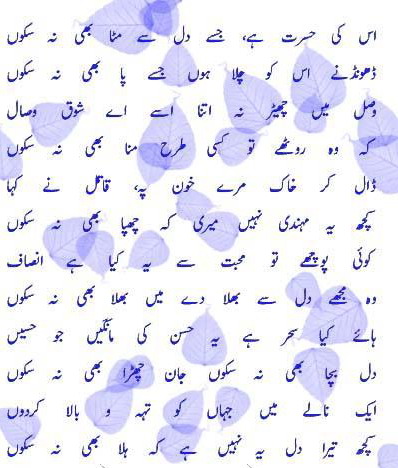 اس کی حسرت ہے، جسے دل سے مٹا بھی نہ سکوں
ڈھونڈنے اس کو چلا ہوں جسے پا بھی نہ سکوں
وصل میں چھیڑ نہ اتنا اسے اے شوق وصال
کہ وہ روٹھے تو کسی طرح منا بھی نہ سکوں
ڈال کر خاک مرے خون پہ، قاتل نے کہا
کچھ یہ مہندی نہیں میری کہ چھپا بھی نہ سکوں
کوئی پوچھے تو محبت سے یہ کیا ہے انصاف
وہ مجھے دل سے بھلا دے میں بھلا بھی نہ سکوں
ہائے کیا سحر ہے یہ حسن کی مانگیں جو حسیں
دل بچا بھی نہ سکوں جان چھڑا بھی نہ سکوں
ایک نالے میں جہاں کو تہہ و بالا کردوں
کچھ تیرا دل یہ نہیں ہے کہ ہلا بھی نہ سکوں